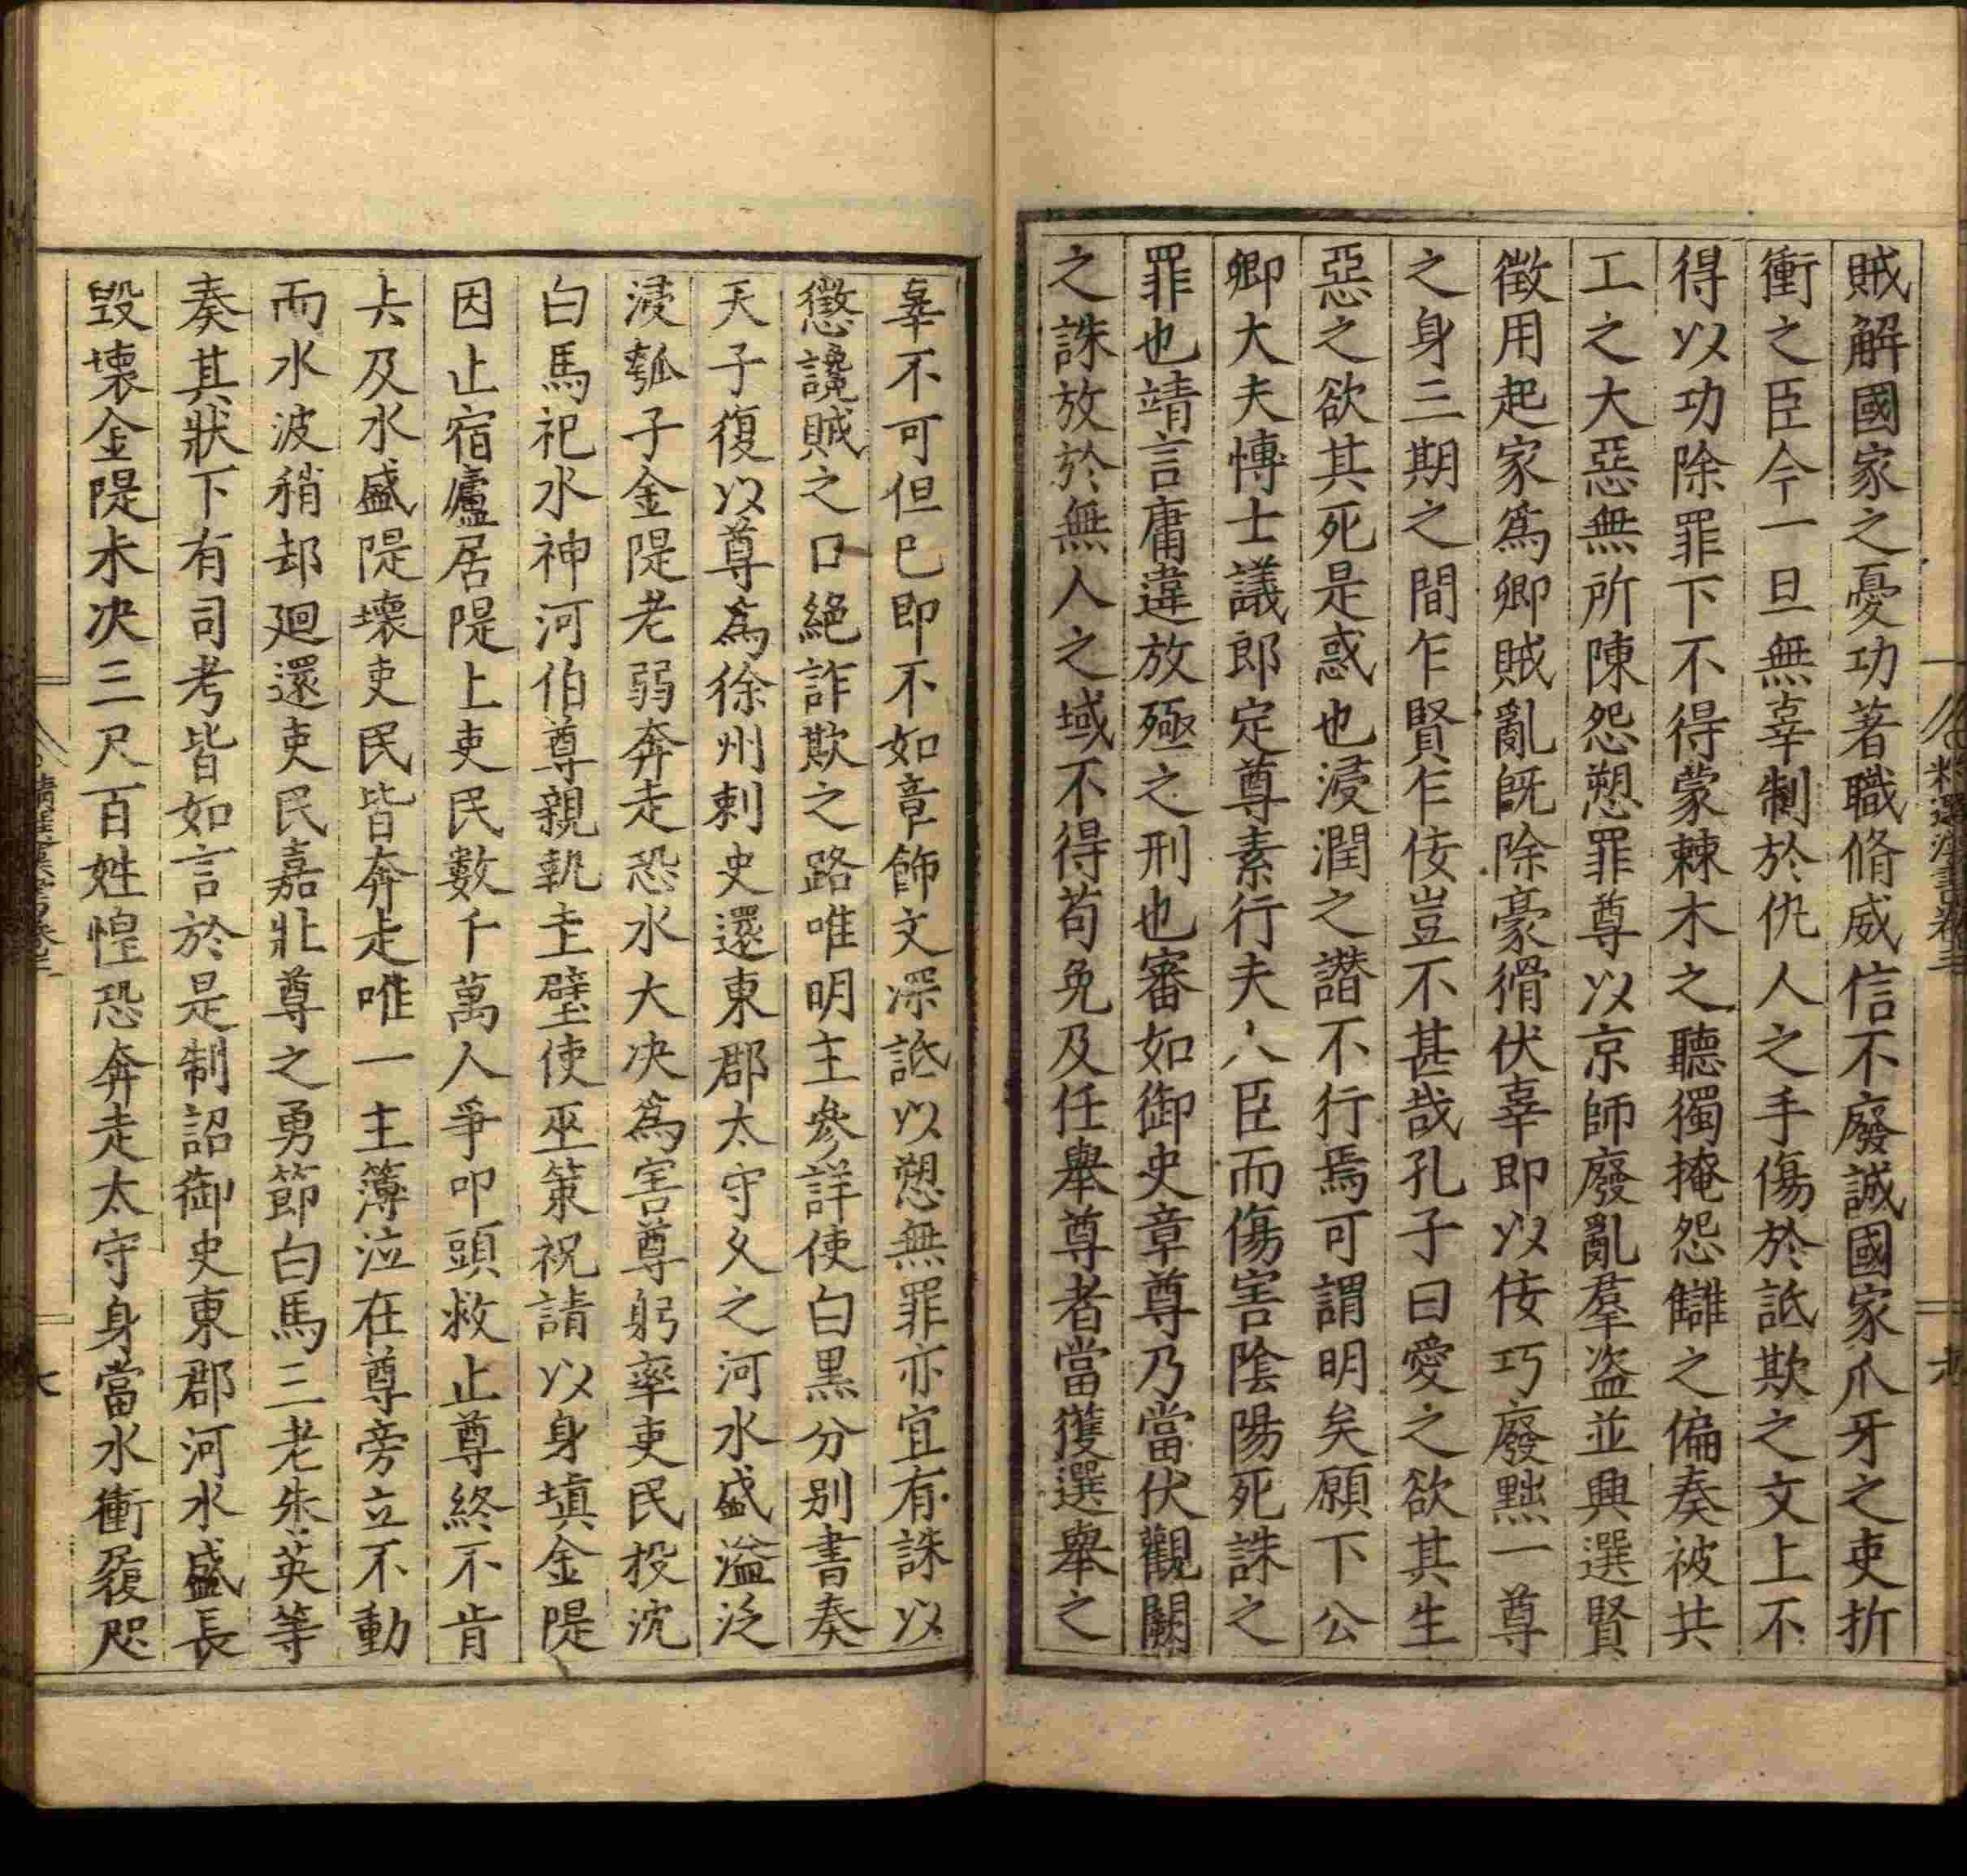 賊解國家之憂功著職脩威信不廢誠國家爪牙之吏折
衝之臣今一旦無辜制於仇人之手傷於詆欺之文上不
得以功除罪下不得蒙棘木之聽獨掩怨讎之偏奏被共
工之大惡無所陳怨愬罪尊以京師廢亂羣盜並興選賢
徵用起家爲卿賊亂旣除豪猾伏辜即以佞巧廢黜一尊
之身三期之間乍賢乍佞豈不甚哉孔子曰愛之欲其生
惡之欲其死是惑也浸潤之譖不行焉可謂明矣願下公
卿大夫博士議郎定尊素行夫人臣而傷害陰陽死誅之
罪也靖言庸違放殛之刑也審如御史章尊乃當伏觀闕
之誅放於無人之域不得苟免及任舉尊者當獲選舉之
辜不可但已即不如章飾文深詆以愬無罪亦宜有誅以
懲讒賊之口絕詐欺之路唯明主參詳使白黑分別書奏
天子復以尊爲徐州刺史還東郡太守久之河水盛溢泛
浸瓠子金隄老弱奔走恐水大决爲害尊躬率吏民投沈
白馬祀水神河伯尊親執圭璧使巫策祝請以身塡金隄
因止宿廬居隄上吏民數千萬人爭叩頭救止尊終不肯
去及水盛隄壞吏民皆奔走唯一主簿泣在尊旁立不動
而水波稍却廻還吏民嘉壯尊之勇節白馬三老朱英等
奏其狀下有司考皆如言於是制詔御史東郡河水盛長
毀壞金隄未决三尺百姓惶恐奔走太守身當水衝履咫